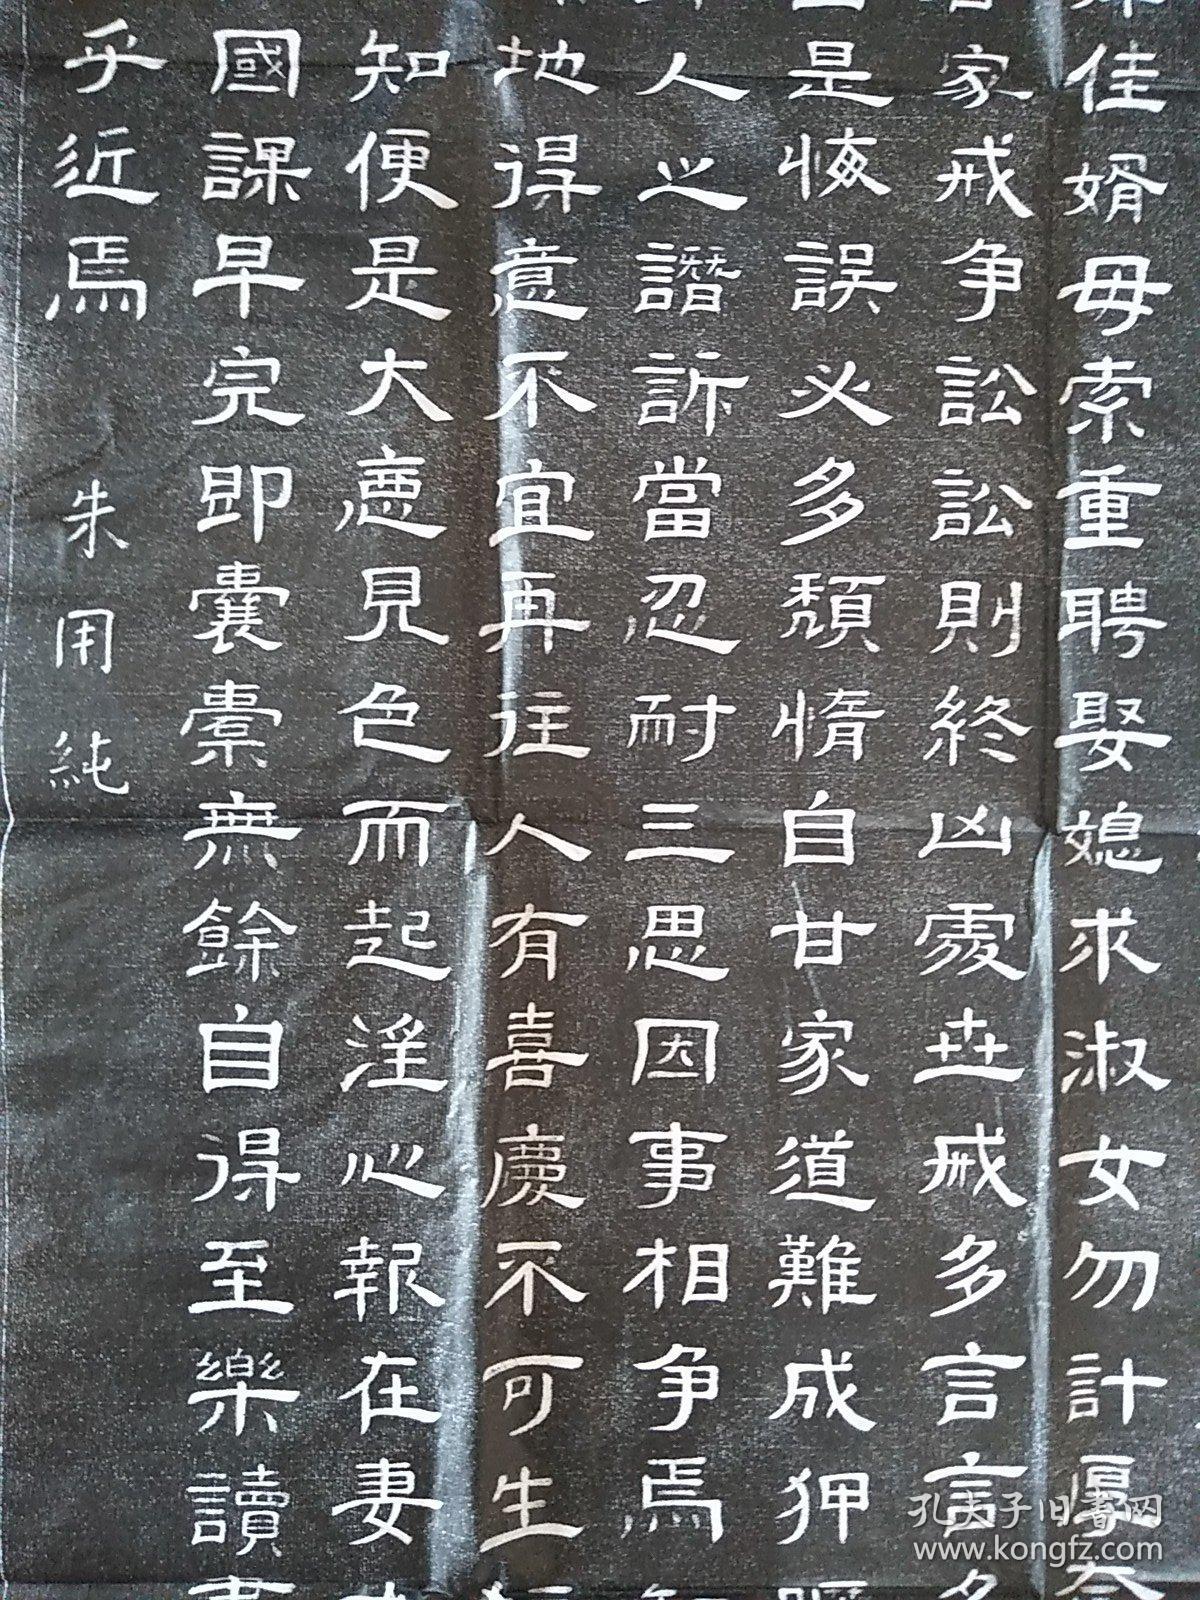 佳婿毋索重聘娶媳求淑女勿計厚
家戒争訟訟則終凶處丗戒多言言
是悔誤必多頹惰自甘家道難成狎
人之譖訴當忍耐三思因事相争焉
地得意不宜再往人有喜慶不可生
知便是大惡見色而起淫心報在妻
國課早完即囊橐無餘自得至樂讀
乎近焉
朱用純
孔夫子旧書网
www.kongfz.com